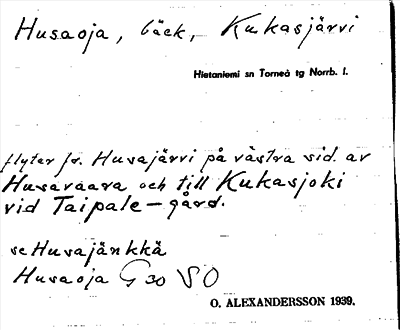 Husaoja, bäck, Kukasjärvi
Hietaniemi sn Torneå tg Norrb. l.
flyter fr. Husajärvi på västra sid. av
Husavaara och till Kukasjoki
vid Taipale-gård.
se Husajänkkä
Husaoja G 30 SO
O. ALEXANDERSSON 1939.